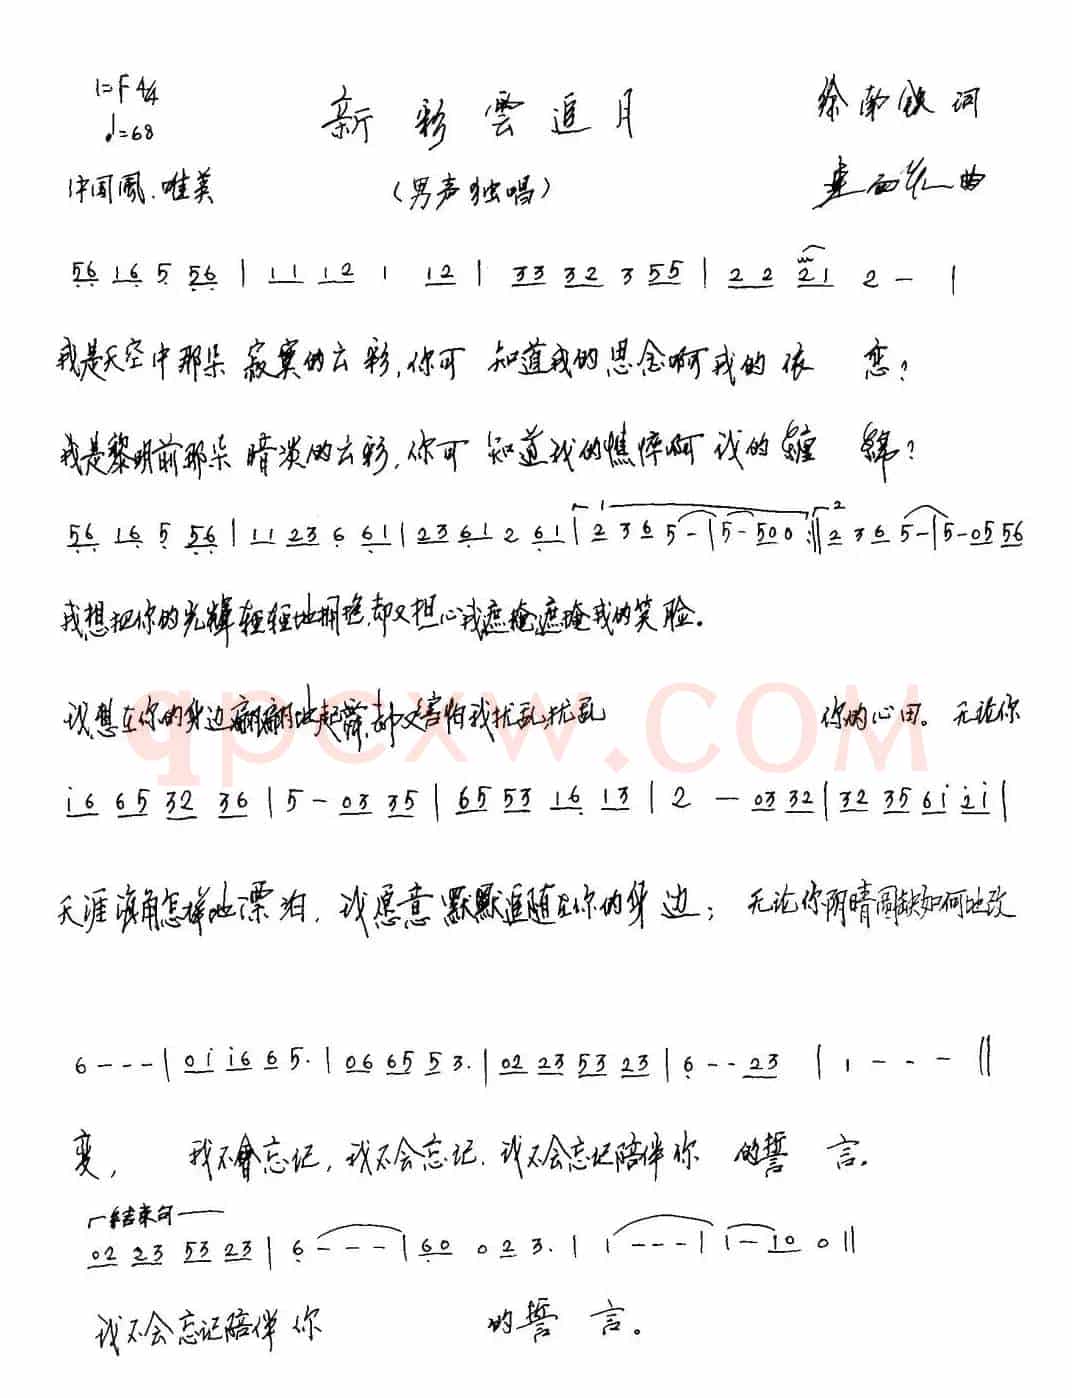 1=F 4/4
♩=68
新彩雲追月
徐荣
词
中国風.唯美
(男声独唱)
曲
56 16 5 56 | 11 12 1 12 | 33 32 3 55 | 2 2 21 2 - |
我是天空中那朵寂寞的云彩,你可知道我的思念啊我的依恋?
我是黎明前那朵暗淡的云彩,你可知道我的憔悴啊我的缠绵?
56 16 5 56 | 11 23 6 61 | 23 61 2 61 | 1 2 3 6 5 - | 5 - 500 :|| 2 2 3 6 5 - | 5 - 05 56
我想把你的光輝轻轻地拥抱,却又担心我遮掩遮掩我的笑脸。
我想在你的身边翩翩地起舞,却又害怕我扰乱扰乱 你的心田。无论你
qpcxw.COM
i6 65 32 36 | 5 - 03 35 | 65 53 16 13 | 2 - 03 32 | 32 35 6i 2i |
天涯海角怎样地漂泊,我愿意默默追随在你的身边;无论你阴晴圆缺如何地改
6 - - - | 0i i6 6 5. | 06 65 5 3. | 02 23 53 23 | 6 - - 23 | 1 - - - ||
变, 我不會忘记,我不会忘记.我不会忘记陪伴你 的誓 言。
结束句
02 23 53 23 | 6 - - - | 60 0 2 3. | 1 - - - | 1 - 10 0 ||
我不会忘记陪伴你 的誓 言。